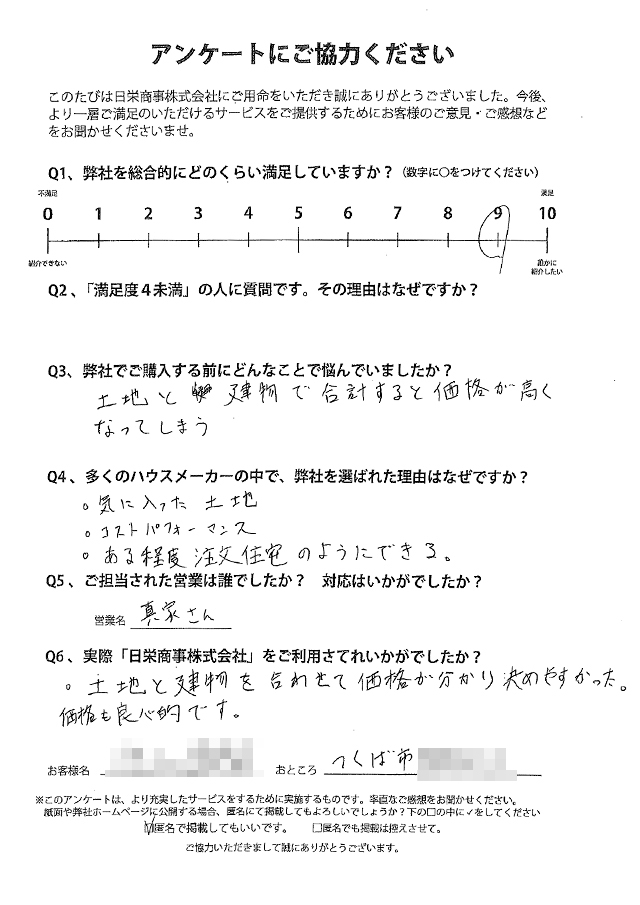 アンケートにご協力ください
このたびは日栄商事株式会社にご用命をいただき誠にありがとうございました。今後、
より一層ご満足のいただけるサービスをご提供するためにお客様のご意見・ご感想など
をお聞かせくださいませ。
Q1、弊社を総合的にどのくらい満足していますか?(数字に○をつけてください)
不満足 満足
0 1 2 3 4 5 6 7 8 9 10
紹介できない 誰かに
紹介したい
Q2、「満足度4未満」の人に質問です。その理由はなぜですか?
Q3、弊社でご購入する前にどんなことで悩んでいましたか?
土地と 建物で合計すると価格が高く
なってしまう
Q4、多くのハウスメーカーの中で、弊社を選ばれた理由はなぜですか?
。気に入った土地
。コストパフォーマンス
。ある程度注文住宅のようにできる。
Q5、ご担当された営業は誰でしたか? 対応はいかがでしたか?
営業名 真家さん
Q6、実際「日栄商事株式会社」をご利用さてれいかがでしたか?
。土地と建物を合わせて価格が分かり決めやすかった。
価格も良心的です。
お客様名 おところ つくば市
※このアンケートは、より充実したサービスをするために実施するものです。率直なご感想をお聞かせください。
紙面や弊社ホームページに公開する場合、匿名にて掲載してもよろしいでしょうか?下の□の中に✓をしてください
☑匿名で掲載してもいいです。 □匿名でも掲載は控えさせて。
ご協力いただきまして誠にありがとうございます。